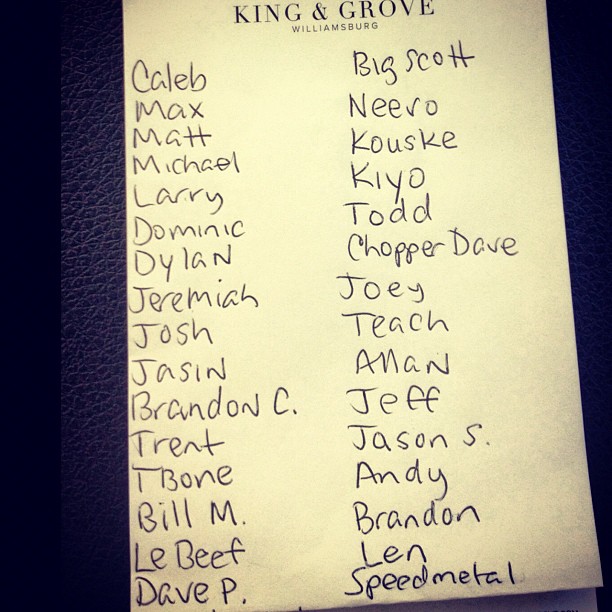 KING & GROVE
WILLIAMSBURG
Caleb
Max
Matt
Michael
Larry
Dominic
Dylan
Jeremiah
Josh
Jasin
Brandon C.
Trent
T Bone
Bill M.
Le Beef
Dave P.
Big Scott
Neero
Kouske
Kiyo
Todd
Chopper Dave
Joey
Teach
Allan
Jeff
Jason S.
Andy
Brandon
Len
Speedmetal